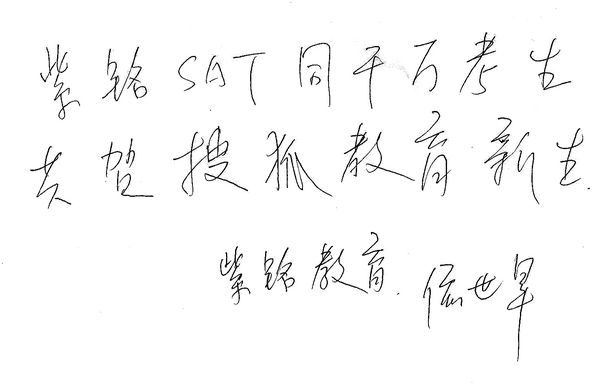 紫铭SAT同千万考生
共贺搜狐教育新生.
紫铭教育.